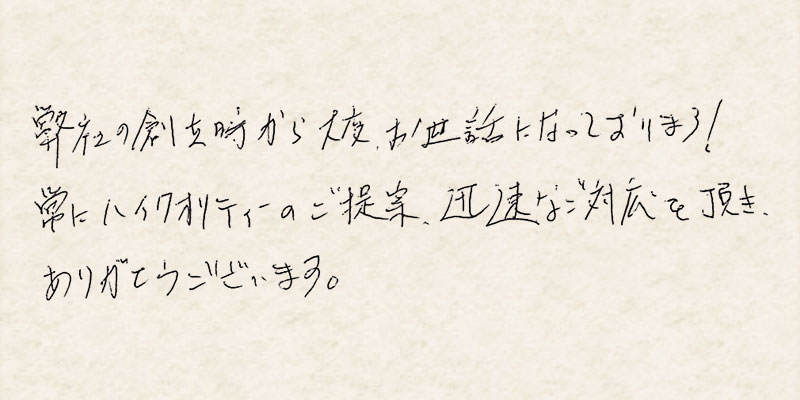 弊社の創立時から大変、お世話になっております!
常にハイクオリティーのご提案、迅速なご対応を頂き、
ありがとうございます。